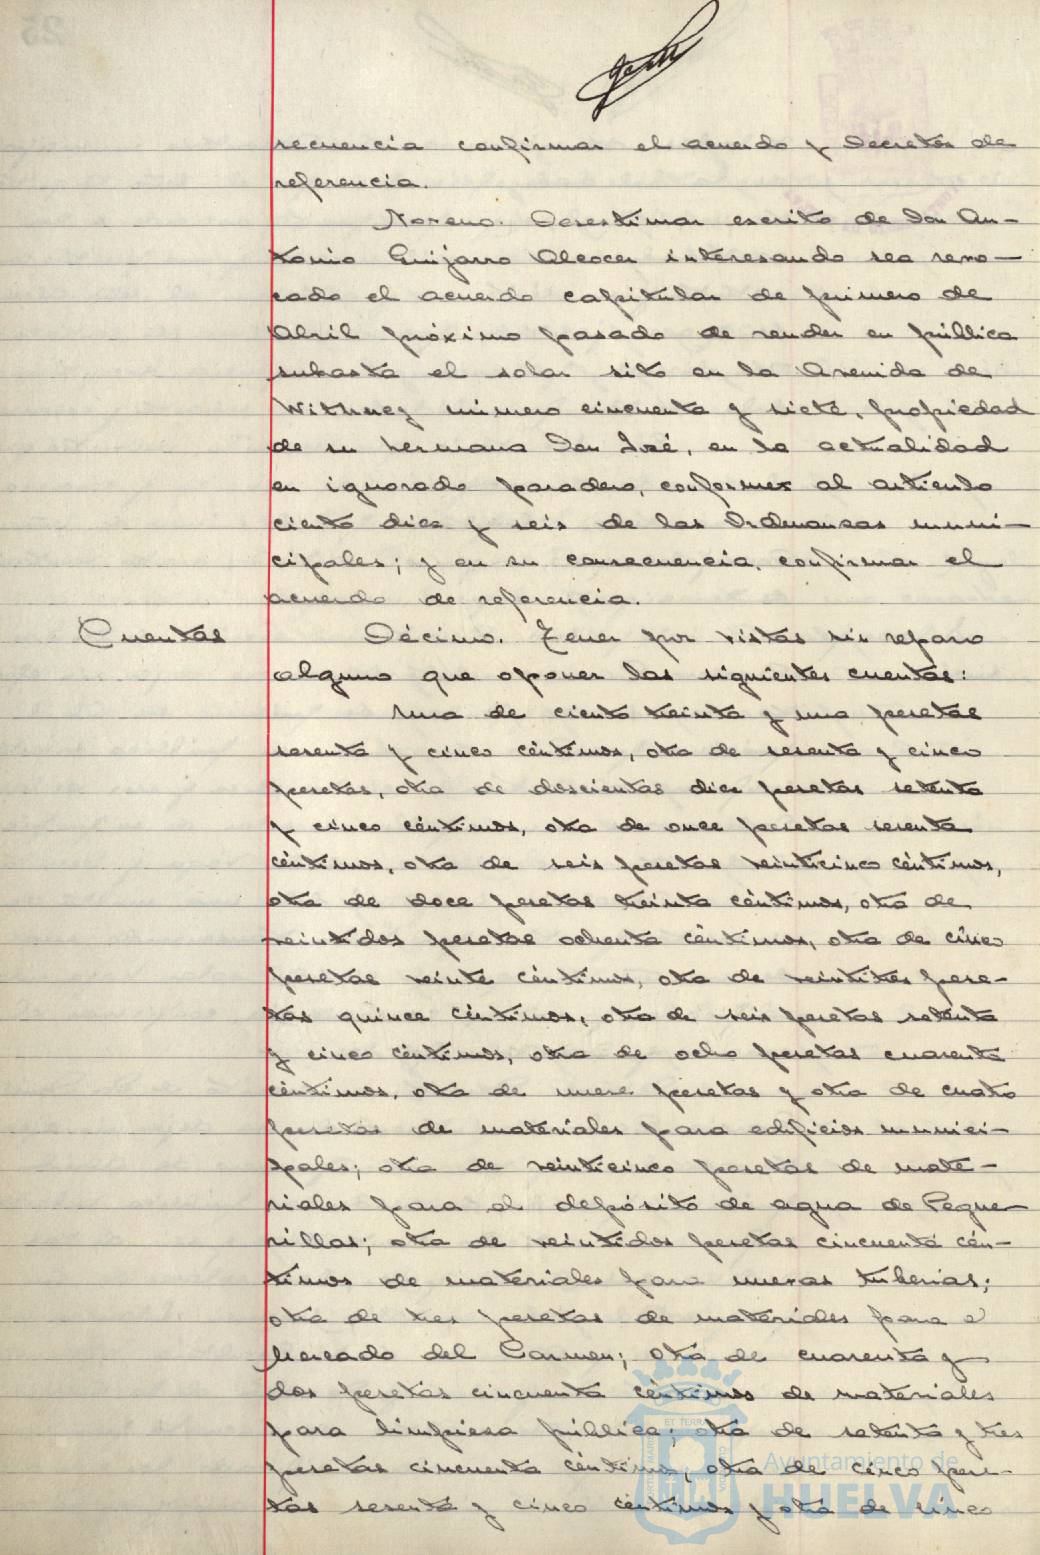 secuencia confirmar el acuerdo y Decretos de
referencia.
Noveno. Desestimar escrito de Don An-
tonio Guijarro Alcocer interesando sea revo-
cado el acuerdo capitular de primero de
Abril próximo pasado de vender en pública
subasta el solar sito en la Avenida de
Withney número cincuenta y siete, propiedad
de su hermano Don José, en la actualidad
en ignorado paradero, conforme al artículo
ciento diez y seis de las Ordenanzas muni-
cipales; y en su consecuencia, confirmar el
acuerdo de referencia.
Cuentas
Décimo. Tener por vistas sin reparo
alguno que oponer las siguientes cuentas:
Una de ciento treinta y una pesetas
sesenta y cinco céntimos, otra de sesenta y cinco
pesetas, otra de doscientas diez pesetas setenta
y cinco céntimos, otra de once pesetas sesenta
céntimos, otra de seis pesetas veinticinco céntimos,
otra de doce pesetas treinta céntimos, otra de
veintidos pesetas ochenta céntimos, otra de cinco
pesetas veinte céntimos, otra de veintitres pese-
tas quince céntimos, otra de seis pesetas setenta
y cinco céntimos, otra de ocho pesetas cuarenta
céntimos, otra de nueve pesetas y otra de cuatro
pesetas de materiales para edificios munici-
pales; otra de veinticinco pesetas de mate-
riales para el depósito de agua de Pegue-
rillas; otra de veintidos pesetas cincuenta cén-
timos de materiales para nuevas tuberias;
otra de tres pesetas de materiales para el
Mercado del Carmen; otra de cuarenta y
dos pesetas cincuenta céntimos de materiales
para limpieza pública; otra de setenta y tres
pesetas cincuenta céntimos, otra de cinco pese-
tas sesenta y cinco céntimos y otra de cinco
Ayuntamiento de
HUELVA